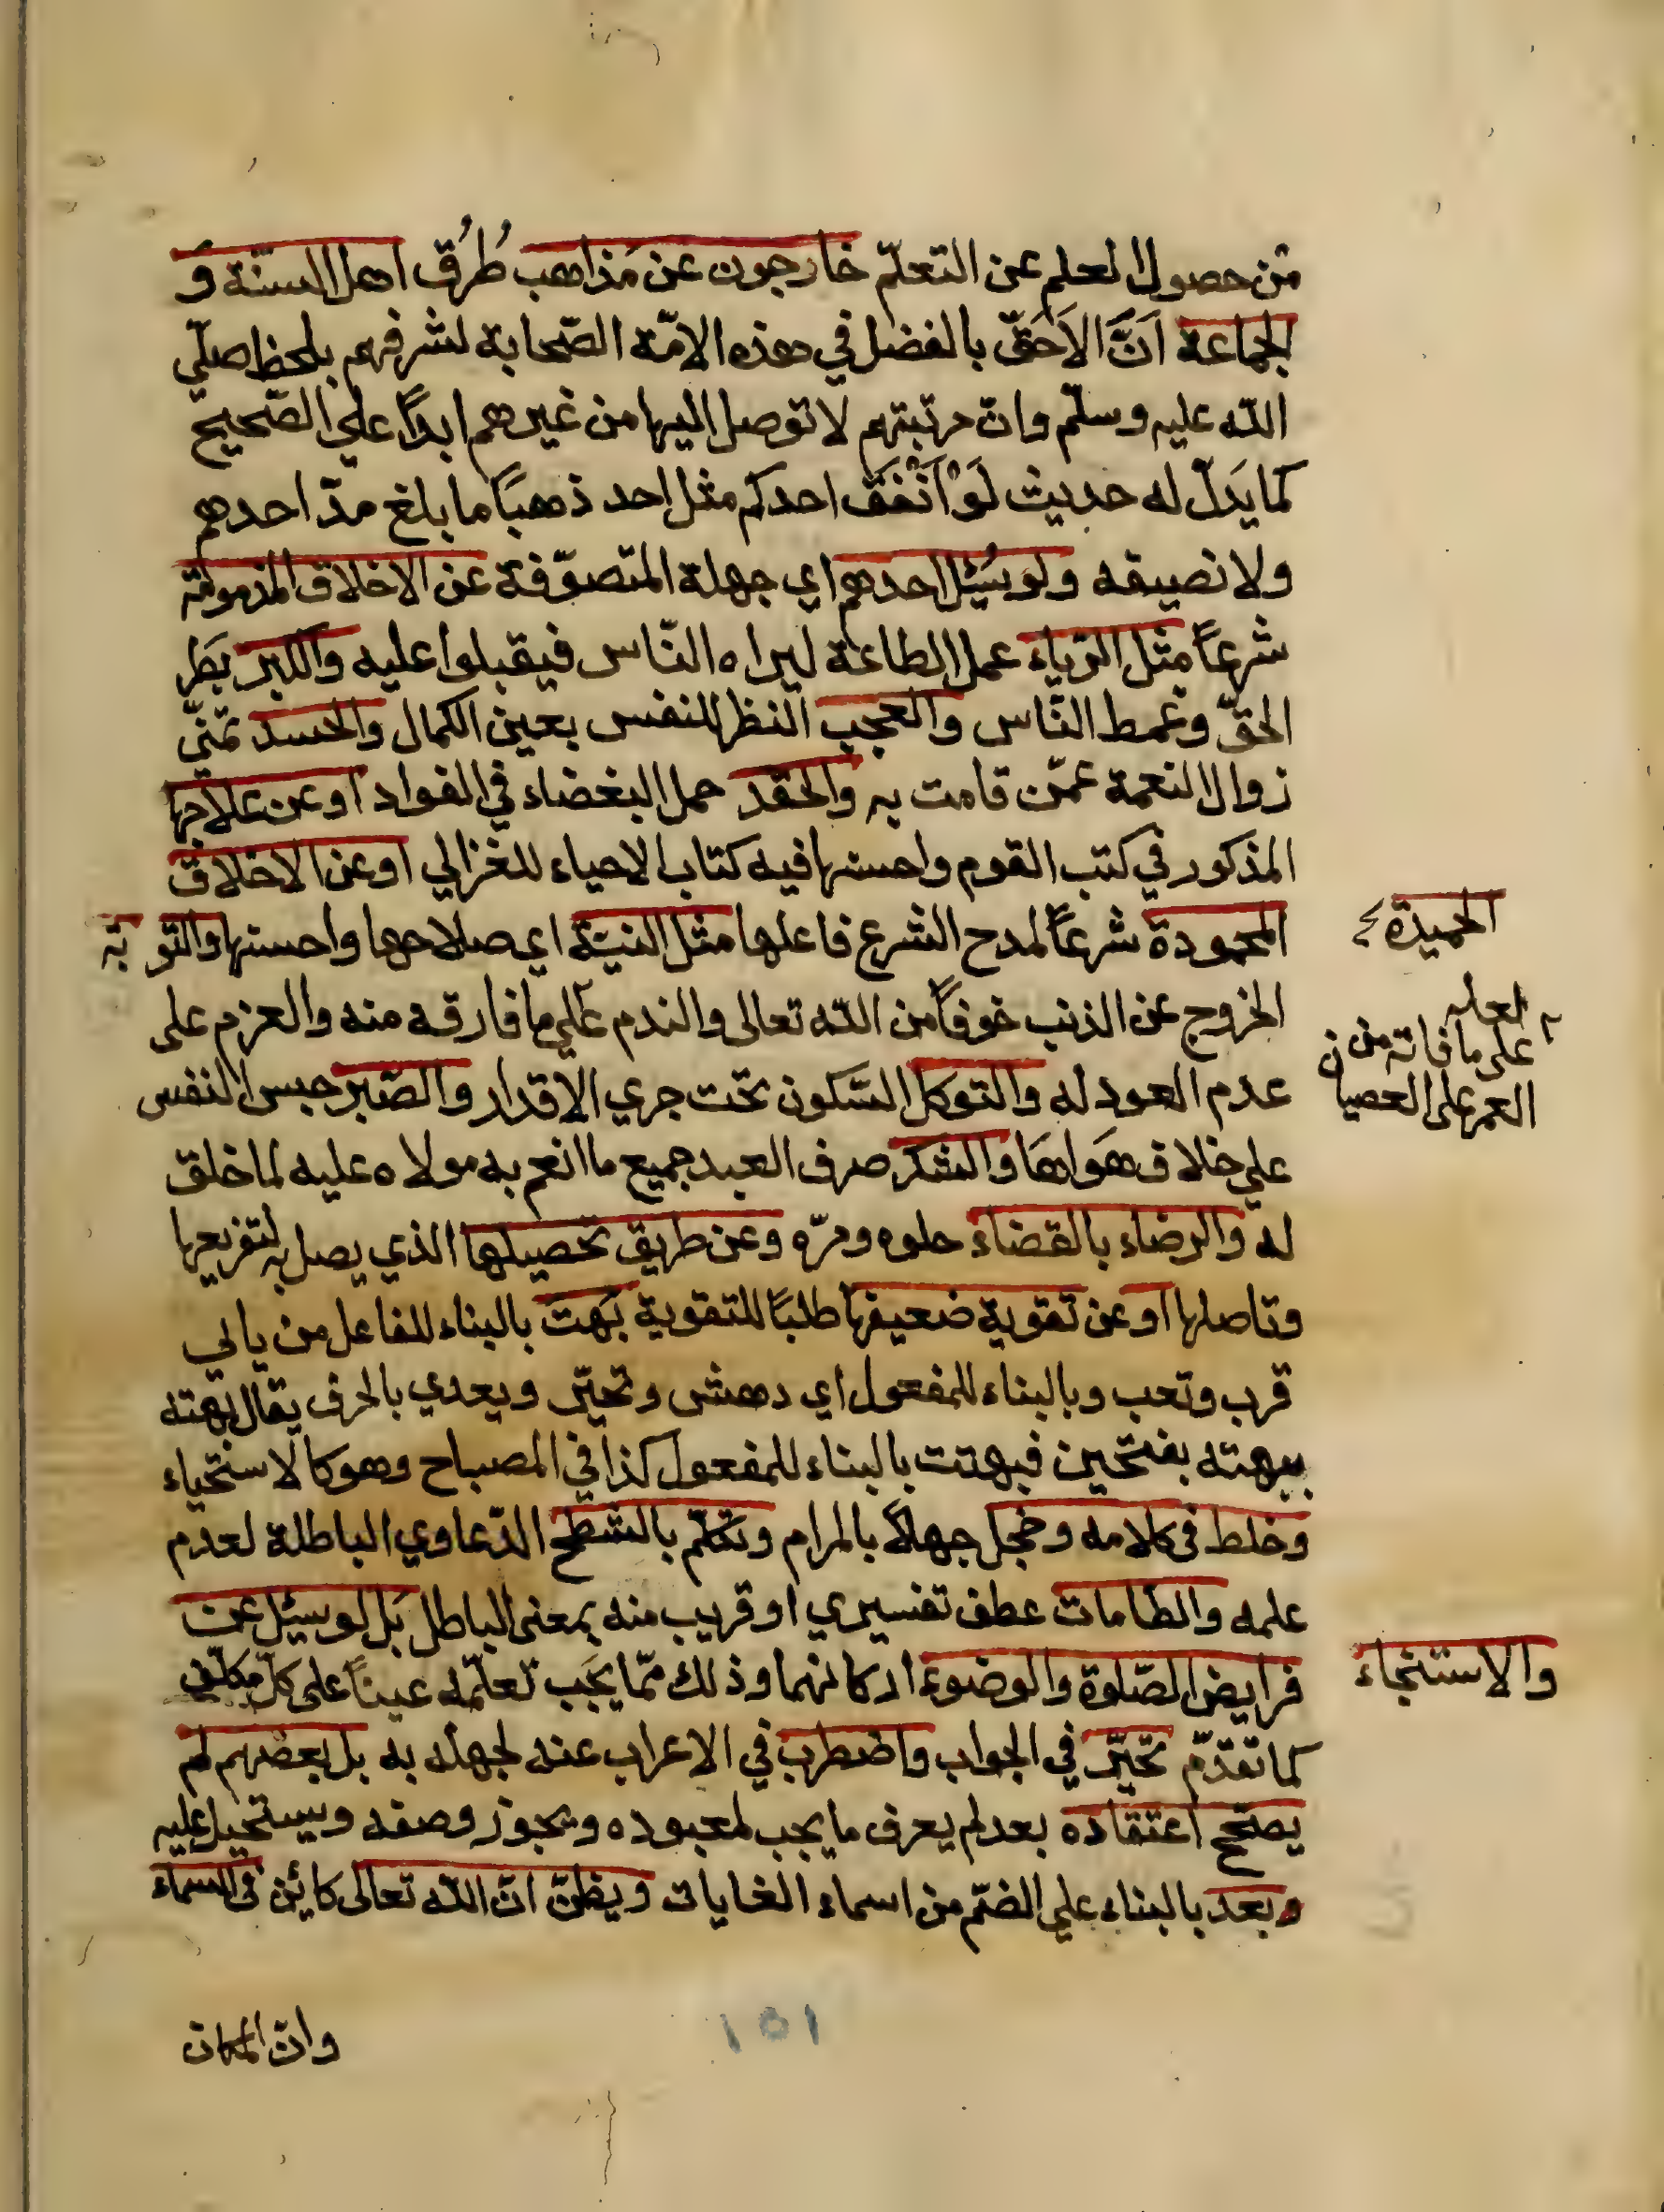 من حصول العلم عن التعلّم خارجون عن مَذاهب طُرُق اهل السنّة وَ
الجماعة اَنَّ الاَحَقّ بالفضل في هذه الامّة الصّحابة لشرفهم بلحظ صلّي
الله عليه وسلّم وانّ مرتبتهم لا توصل اليها من غيرهم ابداً علي الصّحيح
كما يَدلّ له حديث لَوْ اَنْفَقَ احدكم مثل احد ذهبًا ما بلغ مدّ احدهم
ولا نصيفه ولو سُئِل احدهم اي جهلة المتصوّفة عن الاخلاق المذمومة
شرعاً مثل الرّياء عمل الطاعة ليراه النّاس فيقبلوا عليه والكبر بَطَر
الحقّ وغمط النّاس والعجب النظر للنفس بعين الكمال والحسد تمنّي
زوال النعمة عمّن قامت به والحقد حمل البغضاء في الفواد اوعن علاجها
المذكور في كتب القوم واحسنها فيه كتاب الاحياء للغزالي اوعن الاخلاق
المحمودة شرعاً لمدح الشرع فاعلها مثل النيّة اي صلاحها واحسنها والتوبة
الحميدة
الخروج عن الذنب خوفاً من الله تعالى والندم علي ما فارقه منه والعزم على
لعله
على ما فاته من
العمر على العصيان
عدم العود له والتوكل السّكون تحت جري الاقدار والصّبر حبس النفس
علي خلاف هَواهَا والشكر صرف العبد جميع ما انعم به مولاه عليه لما خلق
له والرضاء بالقضاء حلوه ومرّه وعن طريق تحصيلها الذي يصل به لتفريعها
وتاصلها اوعن تقوية ضعيفها طلبًا للتقوية بَهت بالبناء للفاعل من بابي
قرب وتعب وبالبناء للمفعول اي دهش وتحيّر ويعدي بالحرف يقال بهته
يبهته بفتحين فبهتت بالبناء للمفعول كذا في المصباح وهو كالاستحياء
وخلط في كلامه وخجل جهلاً بالمرام وتكلّم بالشطح الدّعاوي الباطلة لعدم
علمه والطّامات عطف تفسيري او قريب منه بمعنى الباطل بَل لو سئِل عن
فرايض الصّلوة والوضوء اركانهما وذلك ممّا يجَب تعلّمه عيناً على كلّ مكلّف
والاستنجاء
كما تقدّم تحيّر في الجواب واضطرب في الاعراب عنه لجهله به بل بعضهم لم
يصحّح اعتقاده بعد لم يعرف ما يجب لمعبوده ويجوز وصفه ويستحيل عليه
وبعد بالبناء علي الضمّ من اسماء الغايات ويظنّ انّ الله تعالى كائن في السماء
وان المكان
١٥١